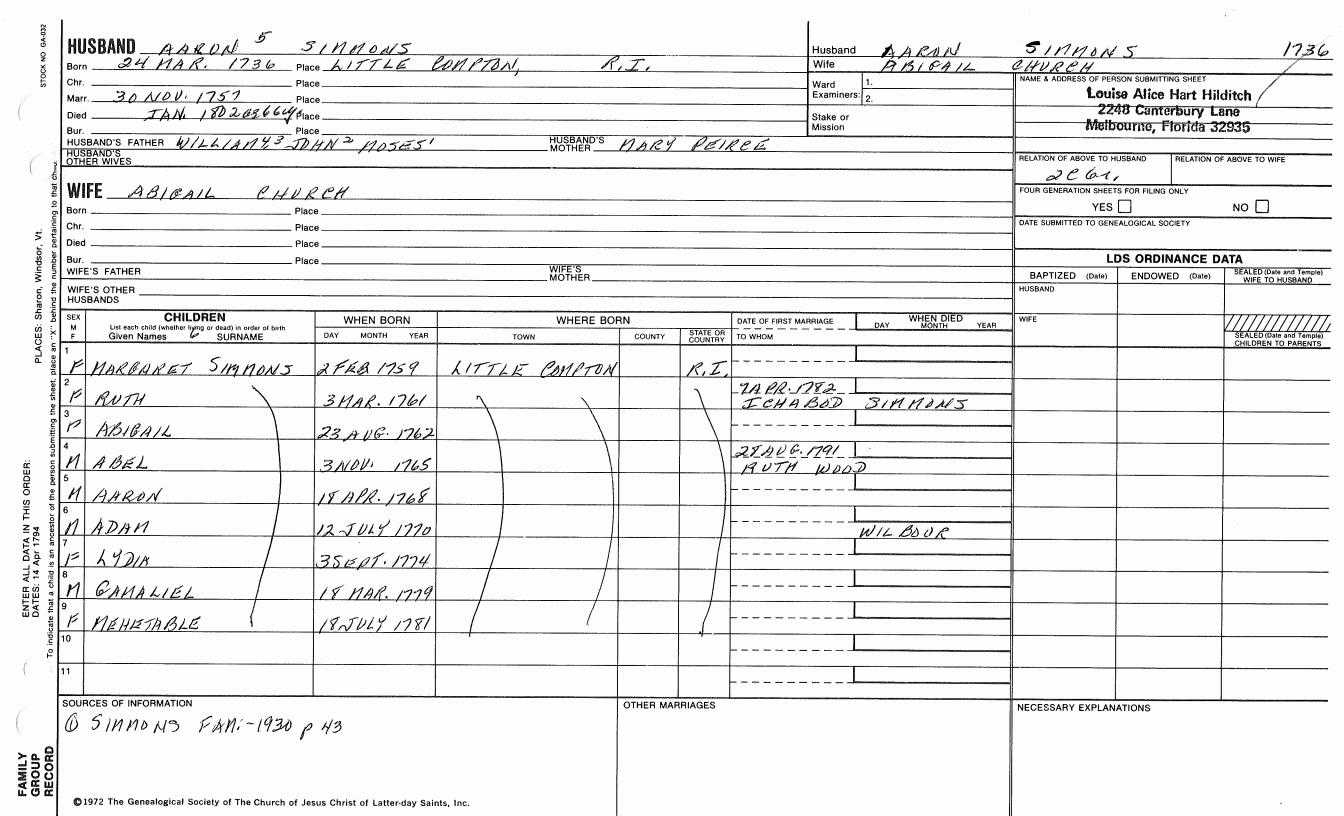 STOCK NO GA-032
HUSBAND AARON 5 SIMMONS
Born 24 MAR. 1736 Place LITTLE COMPTON, R.I.
Chr. Place
Marr. 30 NOV. 1757 Place
Died JAN. 1802 Place
Bur. Place
HUSBAND'S FATHER WILLIAM 4, 3 JOHN 2 MOSES 1 HUSBAND'S MOTHER MARY PEIRCE
HUSBAND'S OTHER WIVES
WIFE ABIGAIL CHURCH
Born Place
Chr. Place
Died Place
Bur. Place
WIFE'S FATHER WIFE'S MOTHER
WIFE'S OTHER HUSBANDS
Husband AARON SIMMONS 1736
Wife ABIGAIL CHURCH
Ward Examiners: 1. 2.
Stake or Mission
NAME & ADDRESS OF PERSON SUBMITTING SHEET
Louise Alice Hart Hilditch
2248 Canterbury Lane
Melbourne, Florida 32935
RELATION OF ABOVE TO HUSBAND RELATION OF ABOVE TO WIFE
FOUR GENERATION SHEETS FOR FILING ONLY
YES NO
DATE SUBMITTED TO GENEALOGICAL SOCIETY
LDS ORDINANCE DATA
BAPTIZED (Date) ENDOWED (Date) SEALED (Date and Temple) WIFE TO HUSBAND
HUSBAND
WIFE
SEALED (Date and Temple) CHILDREN TO PARENTS
SEX M F CHILDREN WHEN BORN WHERE BORN DATE OF FIRST MARRIAGE WHEN DIED
List each child (whether living or dead) in order of birth
Given Names 6 SURNAME DAY MONTH YEAR TOWN COUNTY STATE OR COUNTRY TO WHOM DAY MONTH YEAR
1 F MARGARET SIMMONS 2 FEB 1759 LITTLE COMPTON R.I.
2 F RUTH 3 MAR. 1761 7 APR. 1782 ICHABOD SIMMONS
3 F ABIGAIL 23 AUG. 1762
4 M ABEL 3 NOV. 1765 28 AUG. 1791 RUTH WOOD
5 M AARON 18 APR. 1768
6 M ADAM 12 JULY 1770 WILBOUR
7 F LYDIA 3 SEPT. 1774
8 M GAMALIEL 18 MAR. 1779
9 F MEHETABLE 18 JULY 1781
10
11
SOURCES OF INFORMATION
① SIMMONS FAM:-1930 p 43
OTHER MARRIAGES
NECESSARY EXPLANATIONS
©1972 The Genealogical Society of The Church of Jesus Christ of Latter-day Saints, Inc.
PLACES: Sharon, Windsor, Vt.
ENTER ALL DATA IN THIS ORDER:
DATES: 14 Apr 1794
To indicate that a child is an ancestor of the person submitting the sheet, place an "X" behind the number pertaining to that child.
FAMILY
GROUP
RECORD